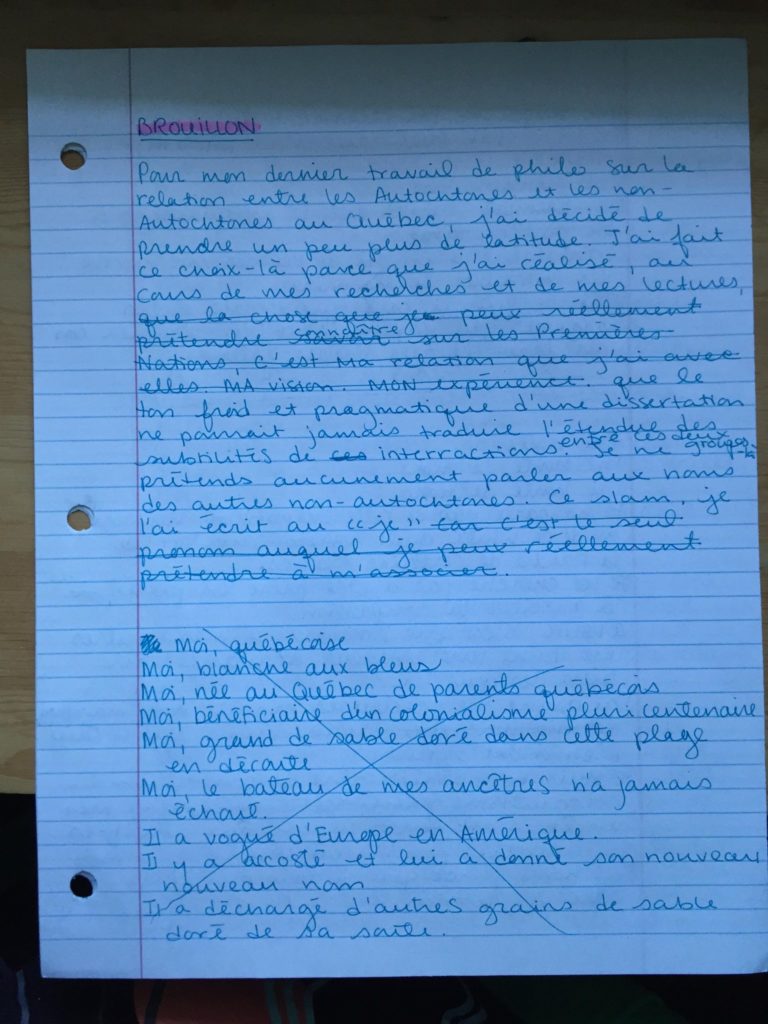 BROUILLON
Pour mon dernier travail de philo sur la
relation entre les Autochtones et les non-
Autochtones au Québec, j'ai décidé de
prendre un peu plus de latitude. J'ai fait
ce choix-là parce que j'ai réalisé, au
cours de mes recherches et de mes lectures,
que la chose que je peux réellement
prétendre savoir connaître sur les Premières
Nations, c'est ma relation que j'ai avec
elles. MA vision. MON expérience. que le
ton froid et pragmatique d'une dissertation
ne pourrait jamais traduire l'étendue des
subtilités de ces interractions entre ces deux groupes-là. Je ne
prétends aucunement parler aux noms
des autres non-autochtones. Ce slam, je
l'ai écrit au "je" car c'est le seul
pronom auquel je peux réellement
prétendre à m'associer.
Moi, québécoise
Moi, blanche aux bleus
Moi, née au Québec de parents québécois
Moi, bénéficiaire d'un colonialisme pluricentenaire
Moi, grand de sable doré dans cette plage
en déroute
Moi, le bateau de mes ancêtres n'a jamais
échoué.
Il a vogué d'Europe en Amérique.
Il y a accosté et lui a donné son nouveau
nouveau nom
Il a déchargé d'autres grains de sable
doré de sa soute.